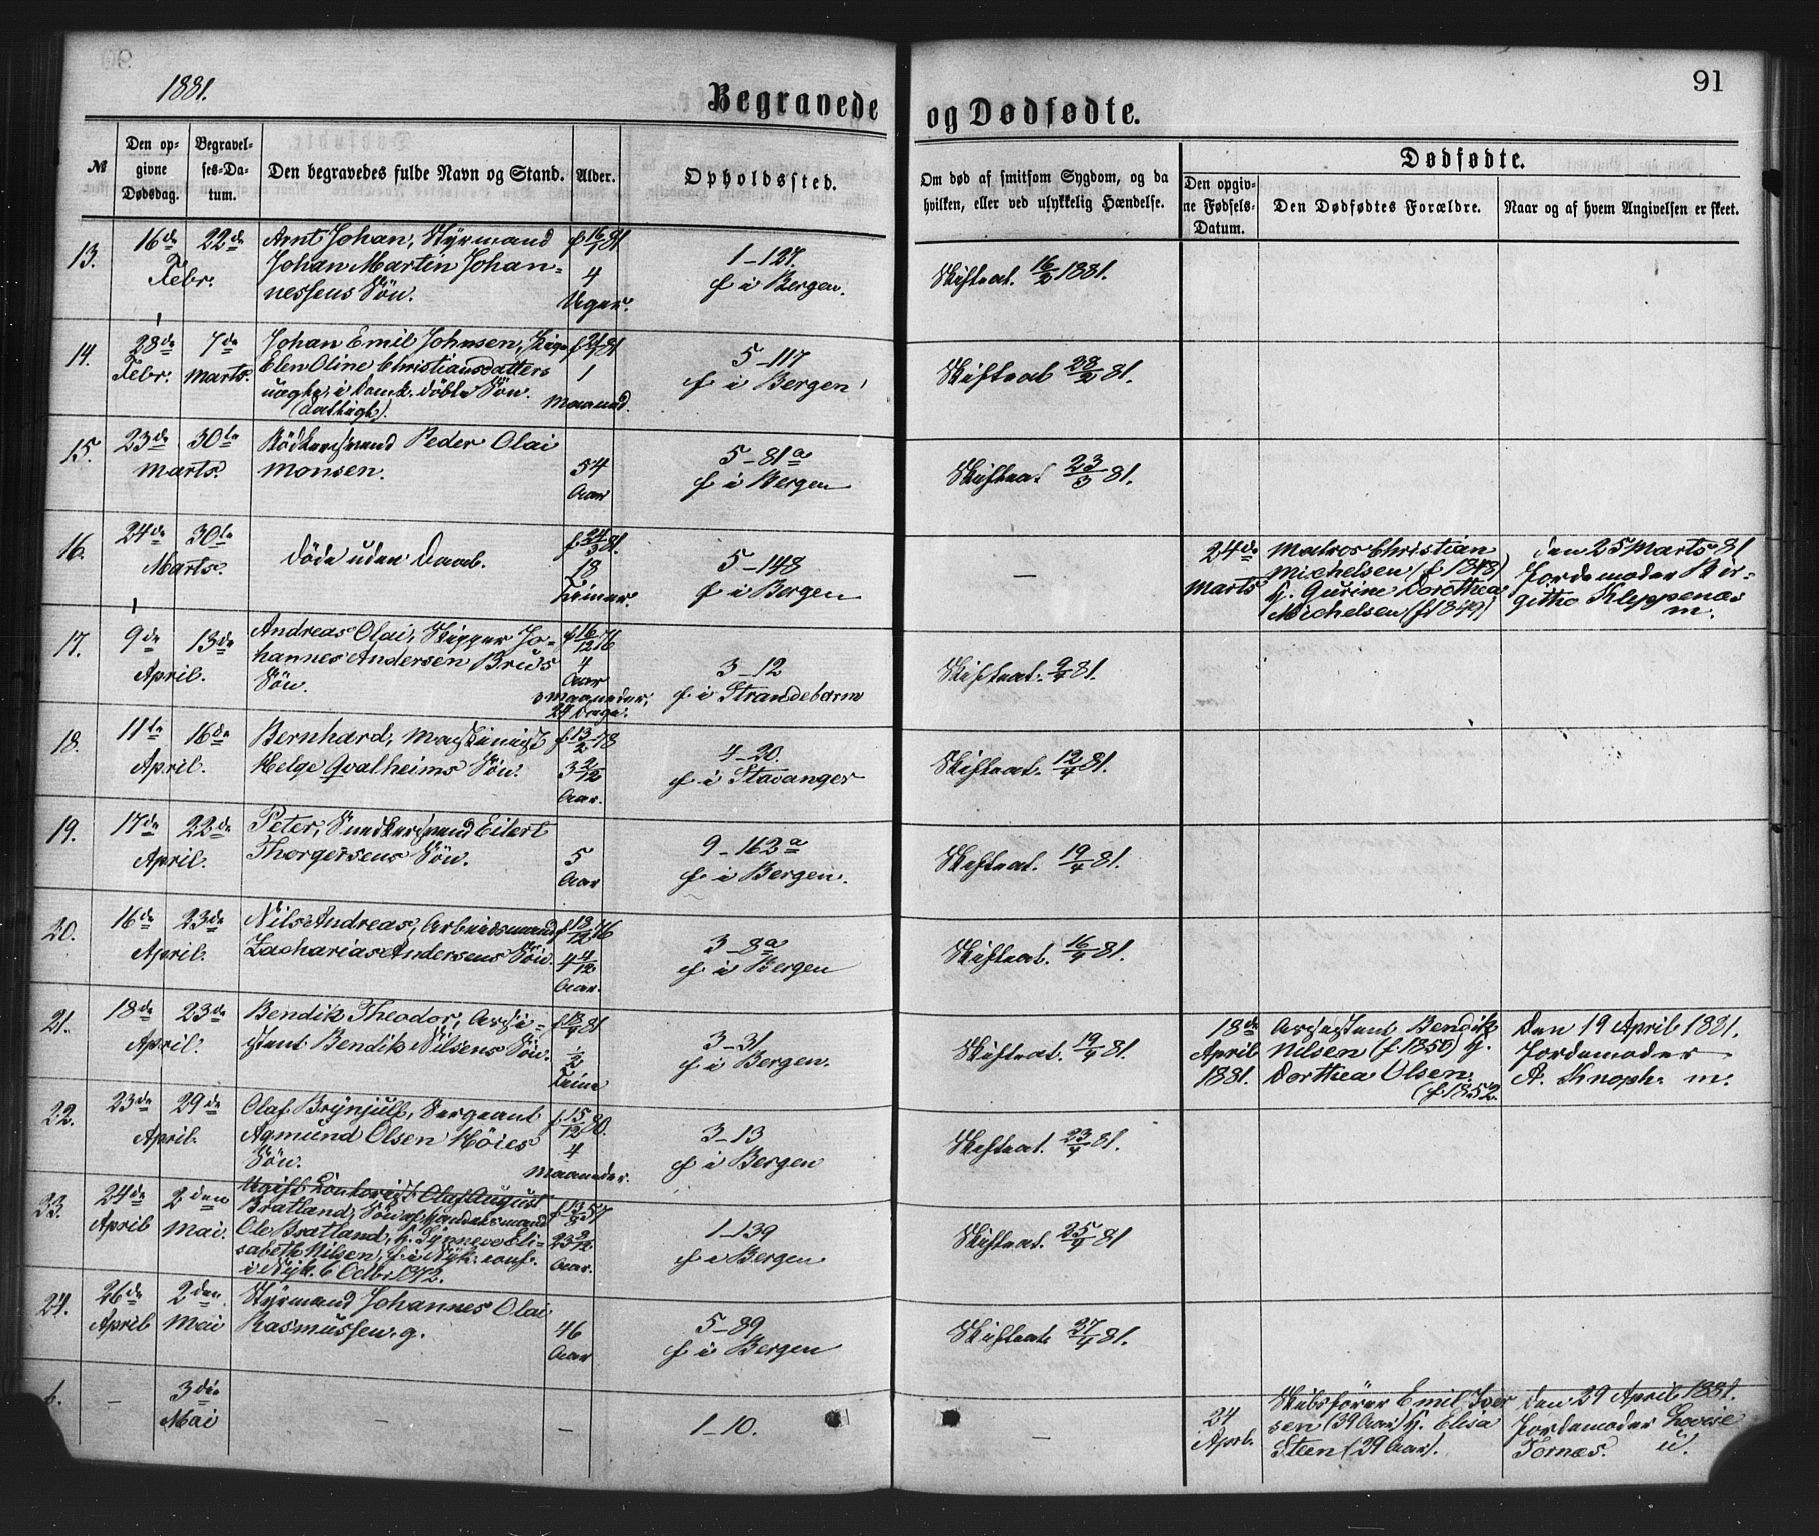 1881.
91
Begravede
og Dødfødte.
№
Den op-
givne
Dødsdag.
Begravel-
ses-Da-
tum.
Den begravedes fulde Navn og Stand.
Alder.
Opholdssted.
Om død af smitsom Sygdom, og da
hvilken, eller ved ulykkelig Hændelse.
Dødfødte.
Den opgiv-
ne Fødsels-
Datum.
Den Dødfødtes Forældre.
Naar og af hvem Angivelsen er skeet.
13.
16de 22de
Febr.
Arnt Johan, Styrmand
Johan Martin Johan-
nessens Søn.
f 16/1 81
4
Uger.
1-127.
f i Bergen.
Skifteat. 16/2 1881.
14.
28de
Febr.
7de
Marts.
Johan Emil Johnsen, Pige
Elen Oline Christiansdatters
uægte, i Domk. døbte Søn.
1
Maaned.
5-117
f i Bergen
Skifteat 28/2 81.
15.
23de 30te
Marts.
Bödkersvend Peder Olai
Monsen.
54
Aar
5-81a
f i Bergen
Skifteat. 23/3 81.
16.
24de 30te
Marts.
Döde uden Daab.
f. 24/3 81.
18
Timer.
5-148
f i Bergen
-
24de
Marts
Matros Christian
Michelsen (f 1848)
H. Gurine Dorothea
Michelsen (f 1849)
den 25 Marts 81
Jordemoder Bir-
githe Kleppenæs
m.
17.
9de 13de
April.
Andreas Olai, Skipper Jo-
hannes Andersen Bruds
Søn.
f 16/12 76
4
Aar
3 Maaneder,
24 Dage.
3-12
f. i Strandebarm
Skifteat. 9/4 81.
18.
11te 16de
April.
Bernhard, Maskinist
Helge Qvalheims Søn.
f 13/2 78
3 2/12
Aar.
4-20.
f i Stavanger
Skifteat. 12/4 81.
19.
17de 22de
April.
Peter, Snedkersvend Eilert
Thorgersens Søn.
5
Aar
9-162a
f. i Bergen.
Skifteat. 19/4 81.
20.
16de 23de
April.
Nils Andreas, Arbeidsmand
Zacharias Andersens Søn.
f 18/12 76
4 4/12
Aar.
3-8a
f i Bergen
Skifteat. 16/4 81.
21.
18de 23de
April.
Bendik Theodor, Assi-
stent Bendik Nilsens Søn.
f 18/4 81
1/2
Time
3-31
f i Bergen.
Skifteat. 19/4 81.
18de
April
1881.
Assistent Bendik
Nilsen (f. 1850) H.
Dorthea Olsen
(f. 1852.
Den 19 April 1881.
Jordemoder
A. Knoph. m.
22.
23de 29de
April.
Olaf Brynjulf, Sergeant
Agmund Olsen Höies
Søn.
f. 15/12 80.
4
Maaneder.
3-13
f i Bergen
Skifteat. 23/4 81.
23.
24de
April
2den
Mai.
Ugift Kontorist Olaf August
Bratland, Søn af Handelsmand
Ole Bratland, H. Synneve Eli-
sabeth Nilsen, f. i Nyk. conf.
i Nyk. 6 Octbr 1872.
f 13/8 57
23 8/12
Aar.
1-139
f i Bergen
Skifteat. 25/4 81
24.
26de
April
2den
Mai
Styrmand Johannes Olai
Rasmussen, g.
46
Aar
5-89
f. i Bergen
Skifteat 27/4 81.
b.
-
3die
Mai
-
1-10.
-
24
April.
Skibsfører Emil Iver
sen (39 Aar) H. Elisa
Steen (29 Aar).
den 29 April 1881.
Jordemoder Lovise
Tornæs. u.